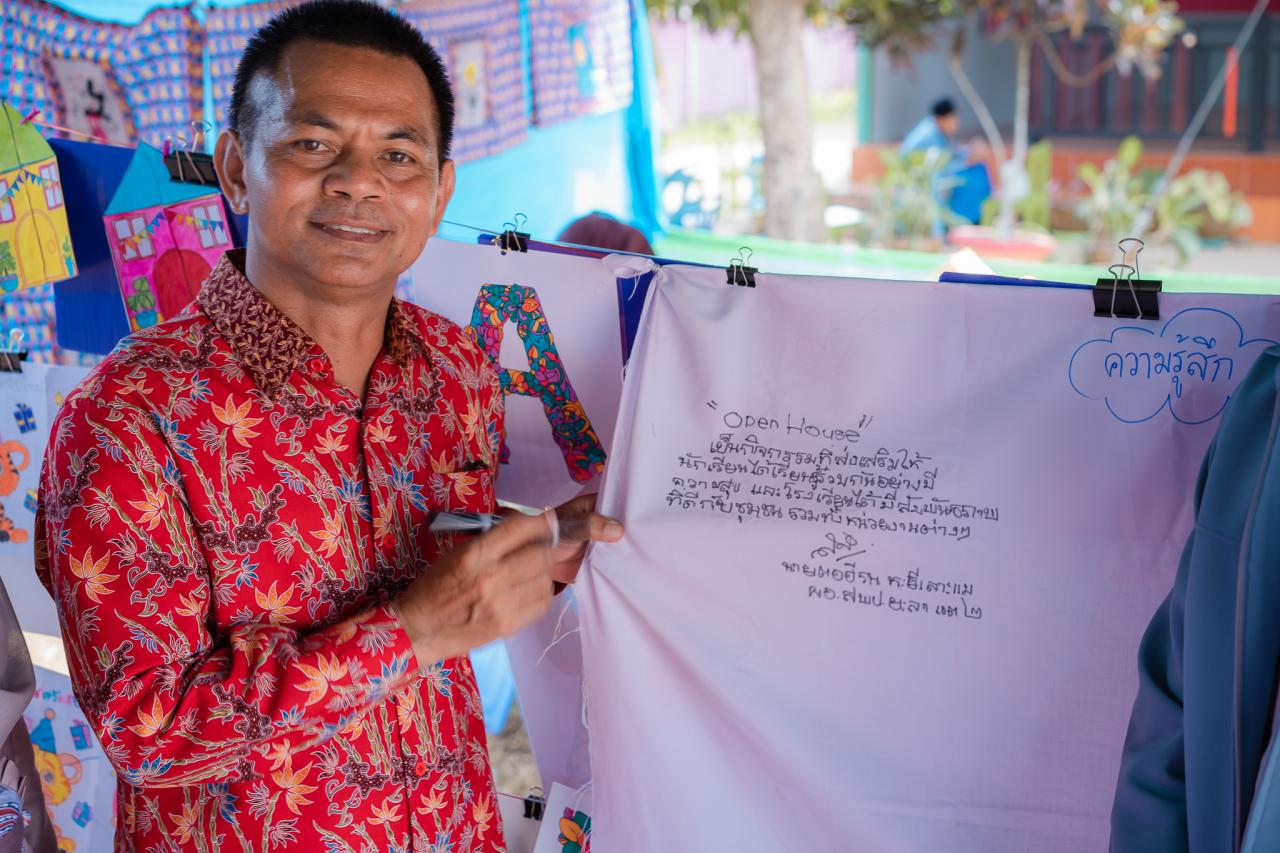 A
ความรู้สึก
"Open House"
เป็นกิจกรรมที่ส่งเสริมให้
นักเรียนได้เรียนรู้ร่วมกันอย่างมี
ความสุข และโรงเรียนได้มีสัมพันธภาพ
ที่ดีกับชุมชน รวมทั้งหน่วยงานต่างๆ
นาย
ผอ.สพป.ยะลา เขต ๒